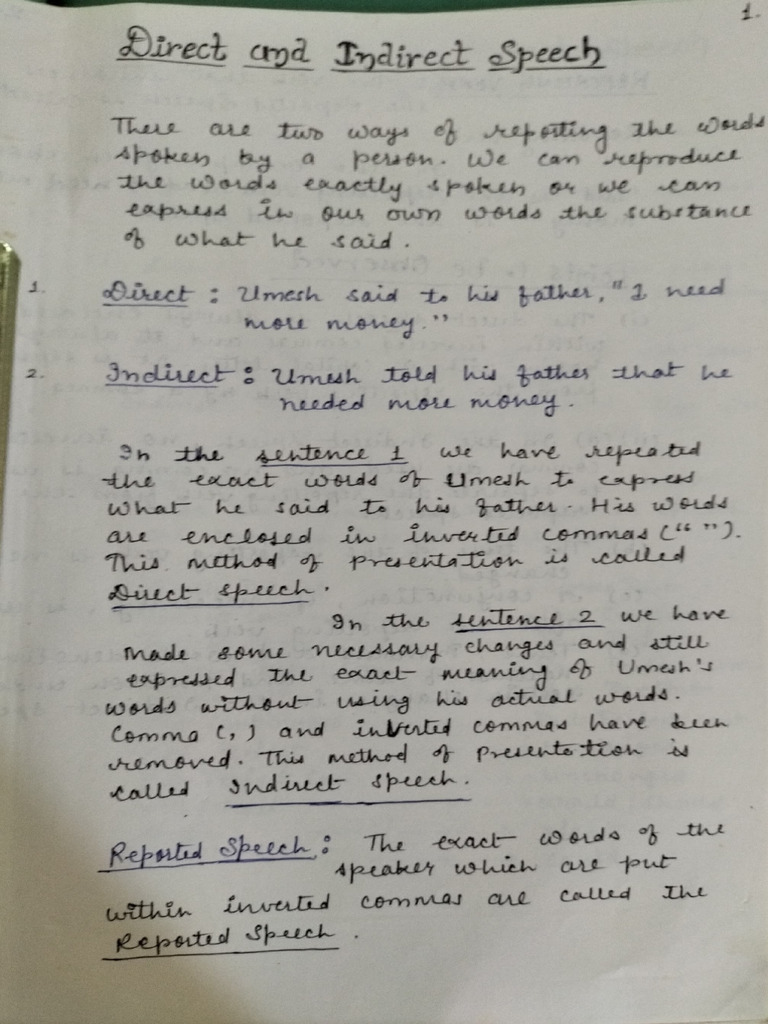 1.
Direct and Indirect Speech
There are two ways of reporting the words
spoken by a person. We can reproduce
the words exactly spoken or we can
express in our own words the substance
of what he said.
1. Direct : Umesh said to his father, "I need
more money."
2. Indirect : Umesh told his father that he
needed more money.
In the sentence 1 we have repeated
the exact words of Umesh to express
what he said to his father. His words
are enclosed in inverted commas (" ").
This method of presentation is called
Direct speech.
In the sentence 2 we have
made some necessary changes and still
expressed the exact meaning of Umesh's
words without using his actual words.
Comma (,) and inverted commas have been
removed. This method of Presentation is
called Indirect speech.
Reported Speech : The exact words of the
speaker which are put
within inverted commas are called the
Reported Speech.